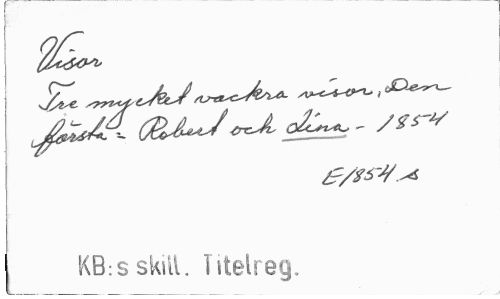 Visor
Tre mycket vackra visor, Den
första = Robert och Lina - 1854
E1854 s
KB:s skill. Titelreg.